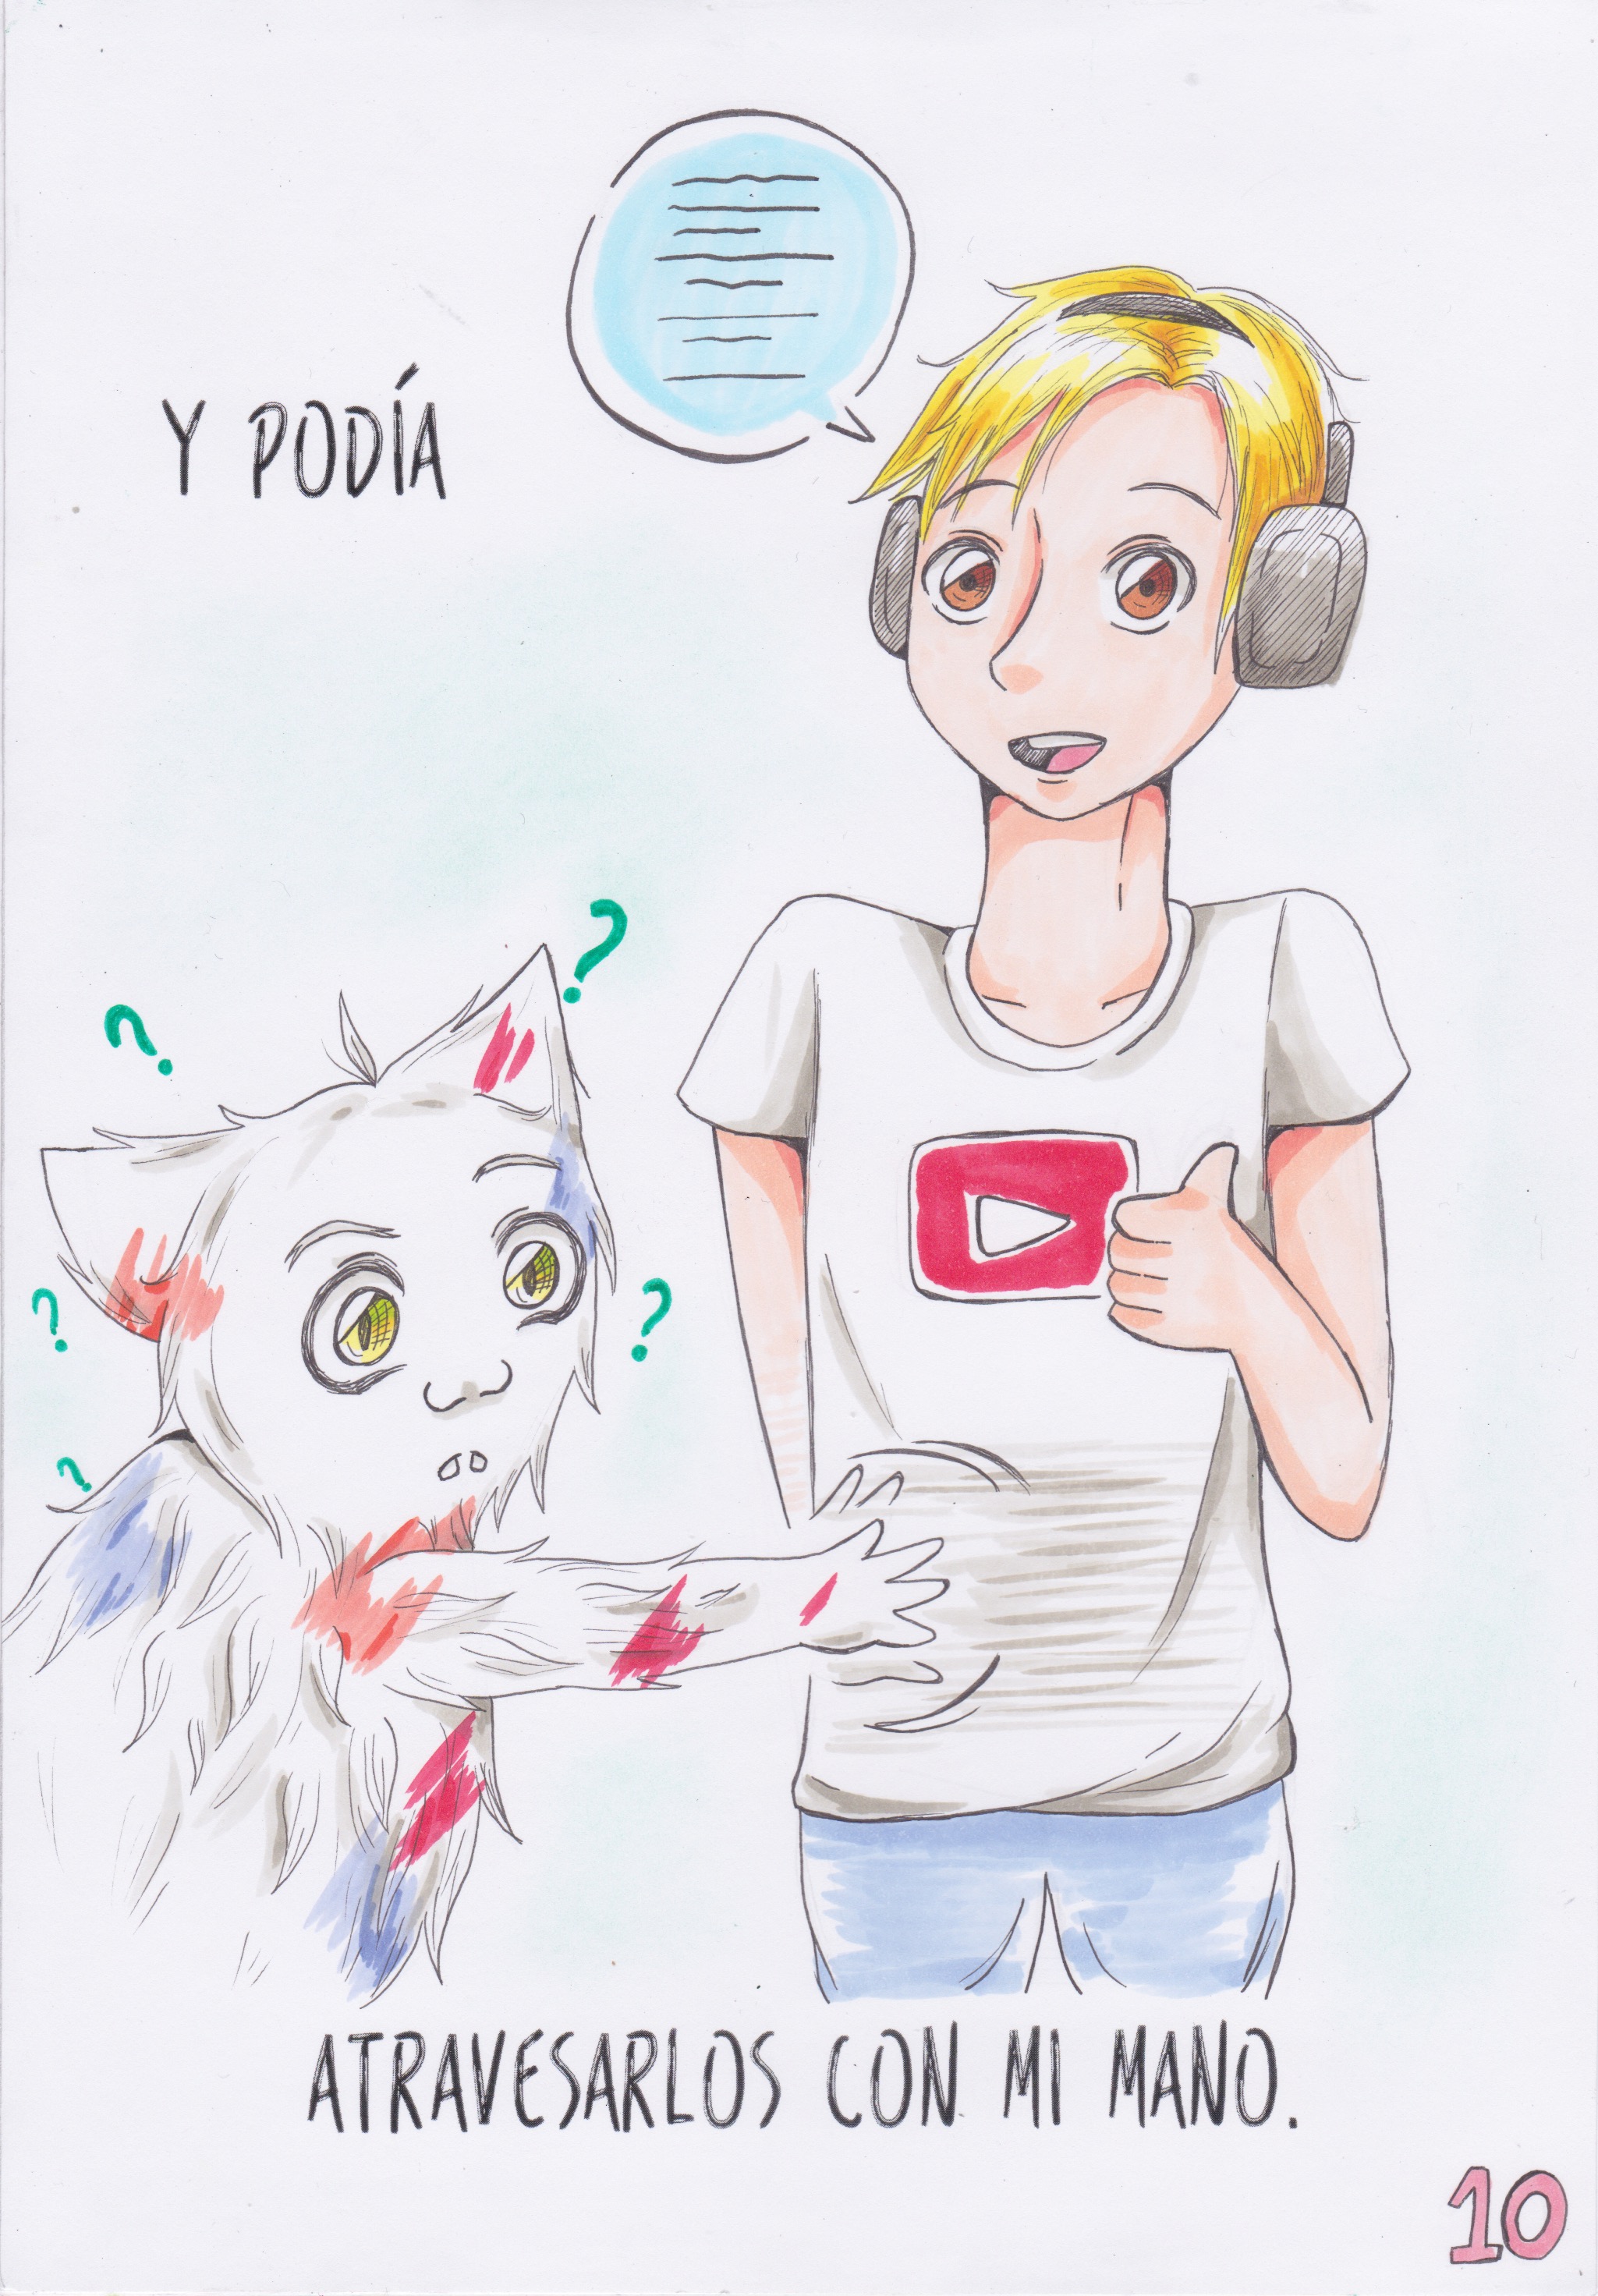 Y PODÍA
?
?
?
?
?
ATRAVESARLOS CON MI MANO.
10